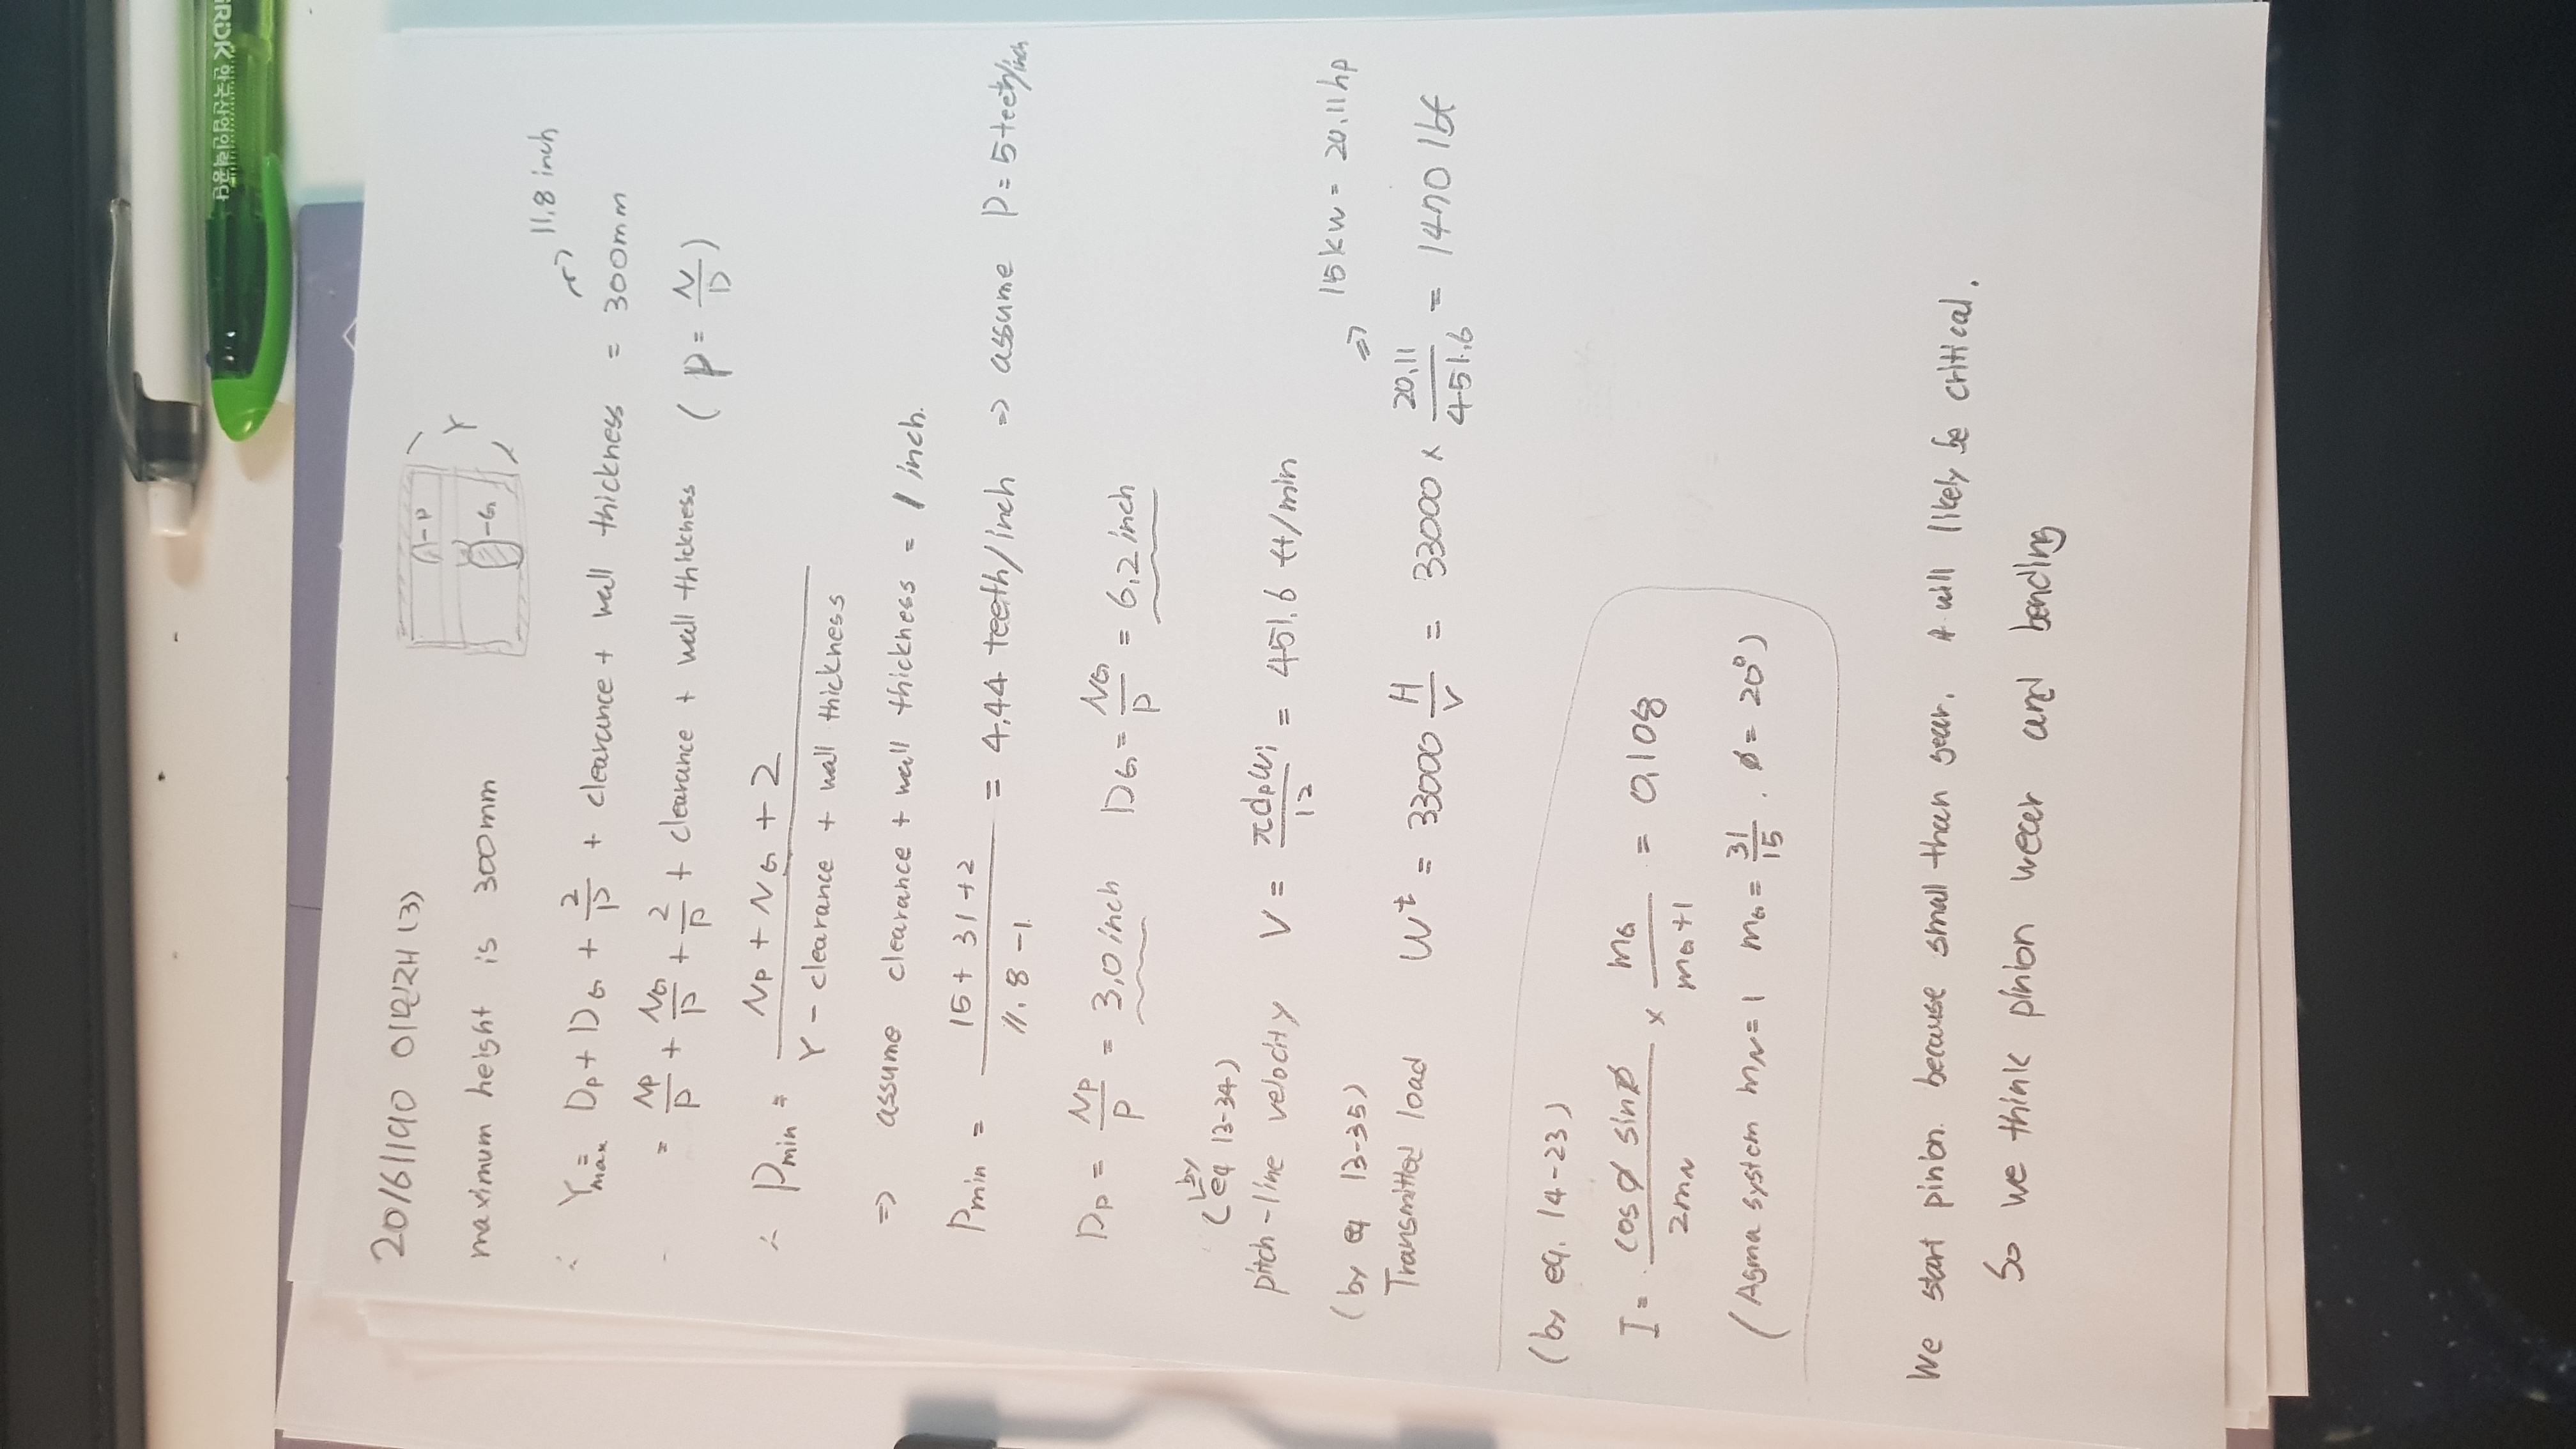 20161190 이민재 (3)
P
G
Y
maximum height is 300mm
11.8 inch
∴ Ymax = DP + DG + 2/P + clearance + wall thickness = 300mm
= NP/P + NG/P + 2/P + clearance + wall thickness ( P = N/D )
∴ Pmin = (NP + NG + 2) / (Y - clearance + wall thickness)
⇒ assume clearance + wall thickness = 1 inch.
Pmin = (15 + 31 + 2) / (11.8 - 1) = 4.44 teeth/inch ⇒ assume P = 5 teeth/inch
DP = NP/P = 3.0 inch DG = NG/P = 6.2 inch
(by eq 13-34)
pitch-line velocity V = πdPωi / 12 = 451.6 ft/min
(by eq 13-35)
⇒ 15kw = 20.11hp
Transmitted load Wt = 33000 H/V = 33000 × 20.11/451.6 = 1470 lbf
(by eq. 14-23)
I = cosø sinø / 2mN × mG / mG+1 = 0.108
(Agma system mN = 1 mG = 31/15 . ø = 20°)
We start pinion. because small than gear. it will likely be critical.
So we think pinion wear and bending